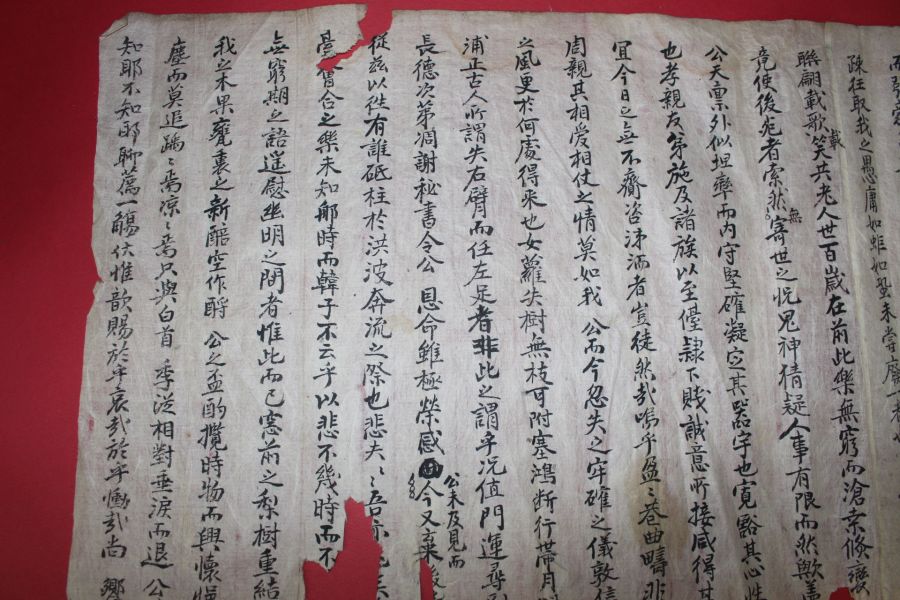 疎狂取我之愚庸如蚷如蛩未嘗
聯翩載歌載笑共老人世百歲在前此樂無窮而滄桑倐變
竟使後死者索然無寄世之怳鬼神猜疑人事有限而然歟盖
公天禀外似坦率而內守堅確凝定其器宇也寬豁其心性
也孝親友弟施及諸族以至儓隷下賤誠意所接咸得其
宜今日之無不齎咨涕洒者豈徒然哉嗚乎盈〻巷曲疇非
周親其相愛相仗之情莫如我 公而今忽失之牢確之儀敦信
之風更於何處得來也女蘿失樹無枝可附塞鴻斷行帶月
浦正古人所謂失右臂而任左足者非此之謂乎况値門運尋
長德次第凋謝秘書令公 恩命雖極榮感公未及見而今又棄
從玆以徃有誰砥柱於洪波奔流之際也悲夫〻吾亦
會合之樂未知那時而韓子不云乎以悲不幾時而不
無窮期之語遥慰幽明之間者惟此而已窓前之梨樹重結
我之未果甕裏之新醅空作酹 公之盃酌攬時物而興懷
塵而莫追踽〻焉凉〻焉只與白首 季從相對垂淚而退 公
知耶不知耶聊薦一觴伏惟歆賜於乎哀哉於乎慟哉尙 饗